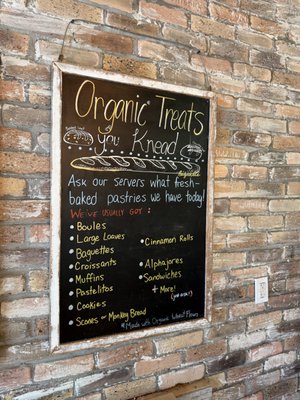 Organic Treats
you Knead
Ask our servers what fresh-
baked pastries we have today!
WE'VE USUALLY GOT :
• Boules
• Large Loaves
• Baguettes
• Croissants
• Muffins
• Pastelitos
• Cookies
• Scones
• Monkey Bread
• Cinnamon Rolls
• Alphajores
• Sandwiches
+ More!
*Made with Organic Wheat Flours